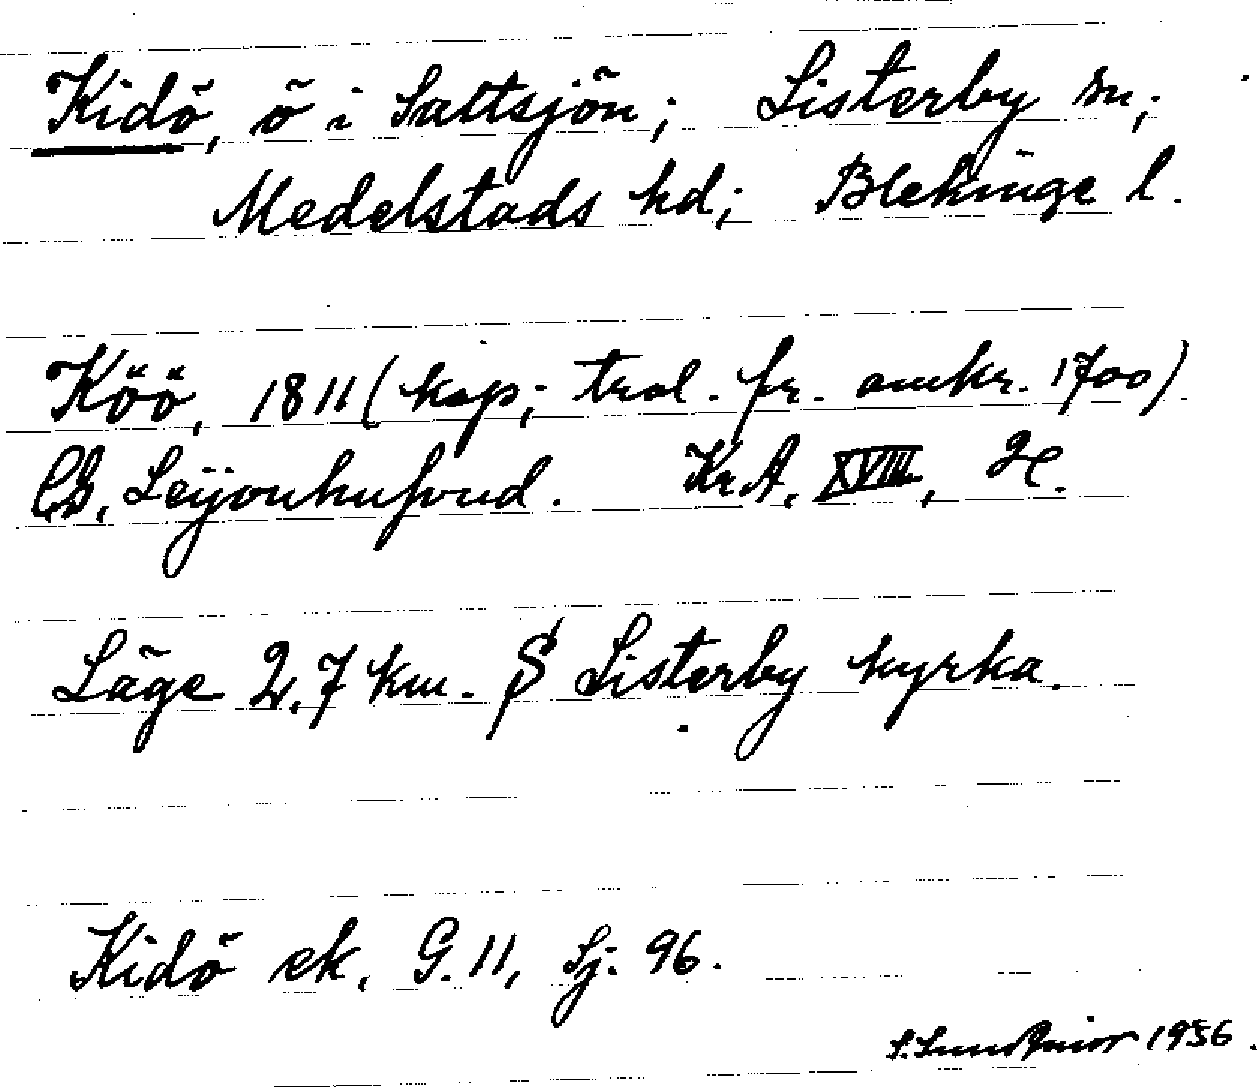 Kidö, ö i Saltsjön; Listerby sn;
Medelstads hd; Blekinge l.
Köö, 1811 (kop; trol. fr. omkr. 1700)
CG, Leijonhufvud. Kr.A. XVIII, 2e.
Läge 2,7 km. S Listerby kyrka.
Kidö ek. G.11, Sj. 96.
1956.